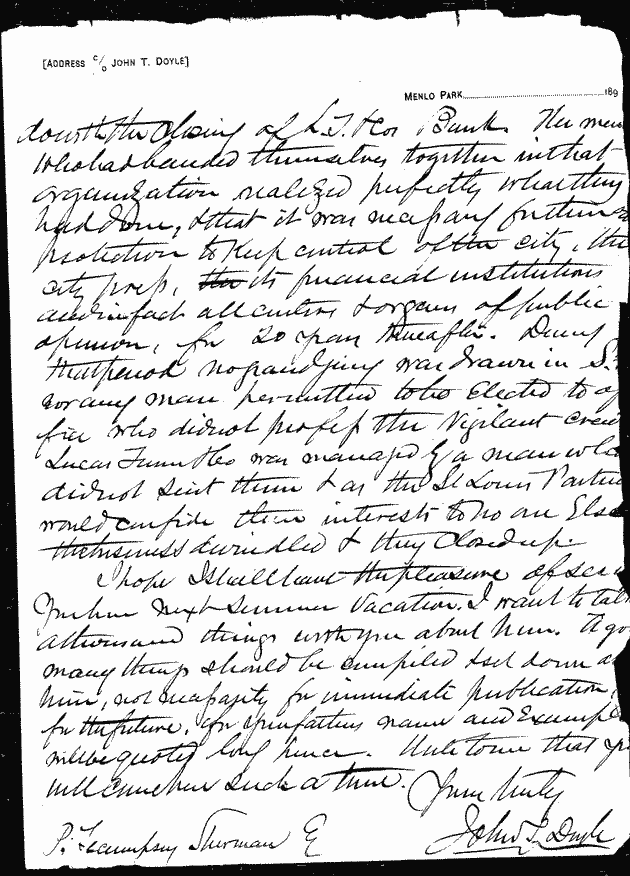 [ADDRESS C/O JOHN T. DOYLE]
MENLO PARK 189
do with the closing of L. T. & Co's Bank. The men
who had banded themselves together in that
organization realized perfectly what they
had done, & that it was necessary for their
protection to keep control of the city, the
city press, its financial institutions
and in fact all centers & organs of public
opinion, for 20 years thereafter. During
that period no grand jury was drawn in S.
nor any man permitted to be elected to of
fice who did not profess the Vigilant creed
Lucas Turner & Co was managed by a man who
did not suit them & as the St Louis Partners
would confide their interests to no one else
the business dwindled & they closed up.
I hope I shall have the pleasure of seeing
you here next summer vacation. I want to talk
a thousand things with you about him. A good
many things should be compiled & set down
him, not necessarily for immediate publication,
for the future, for your father's name and example
will be quoted long hence. Write to me that you
will come here such a time.
Yours truly
John T. Doyle
P. Tecumpsey Sherman E